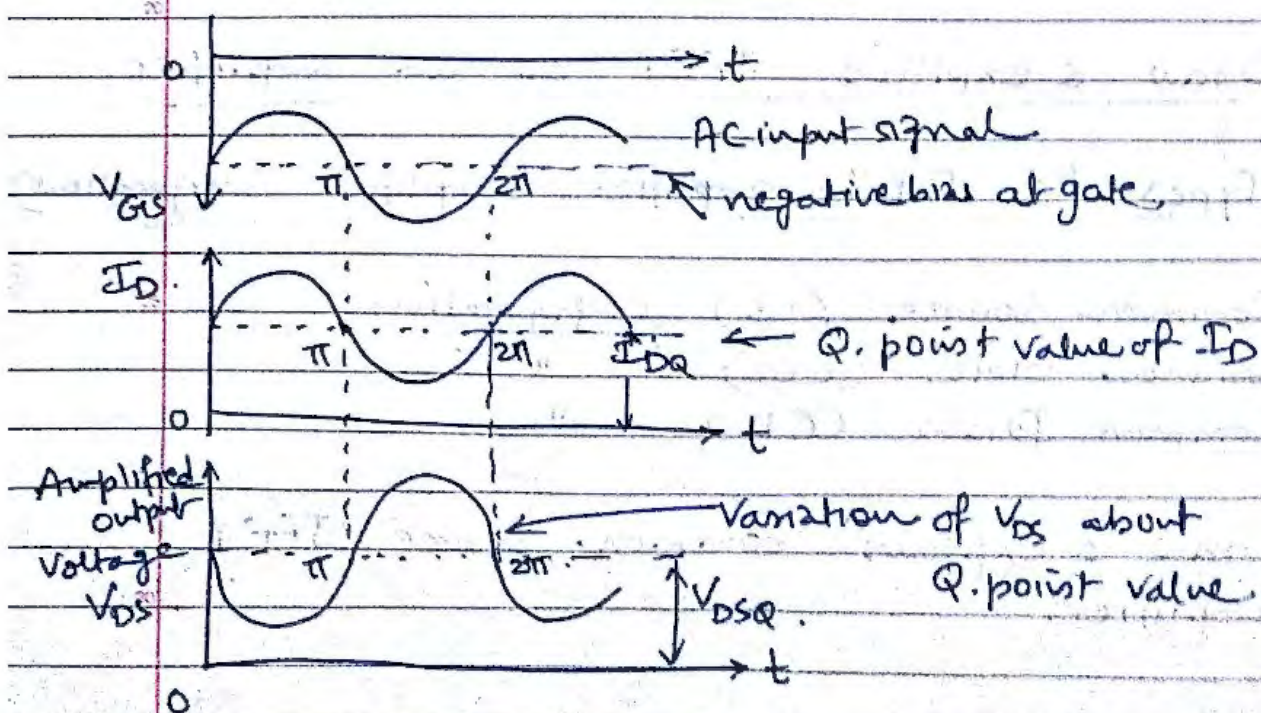 0
t
AC input signal
V_GS
π
2π
negative bias at gate.
I_D
π
2π
I_DQ
Q. point value of I_D
0
t
Amplified
output
voltage
V_DS
π
2π
Variation of V_DS about
Q. point value.
V_DSQ.
t
0